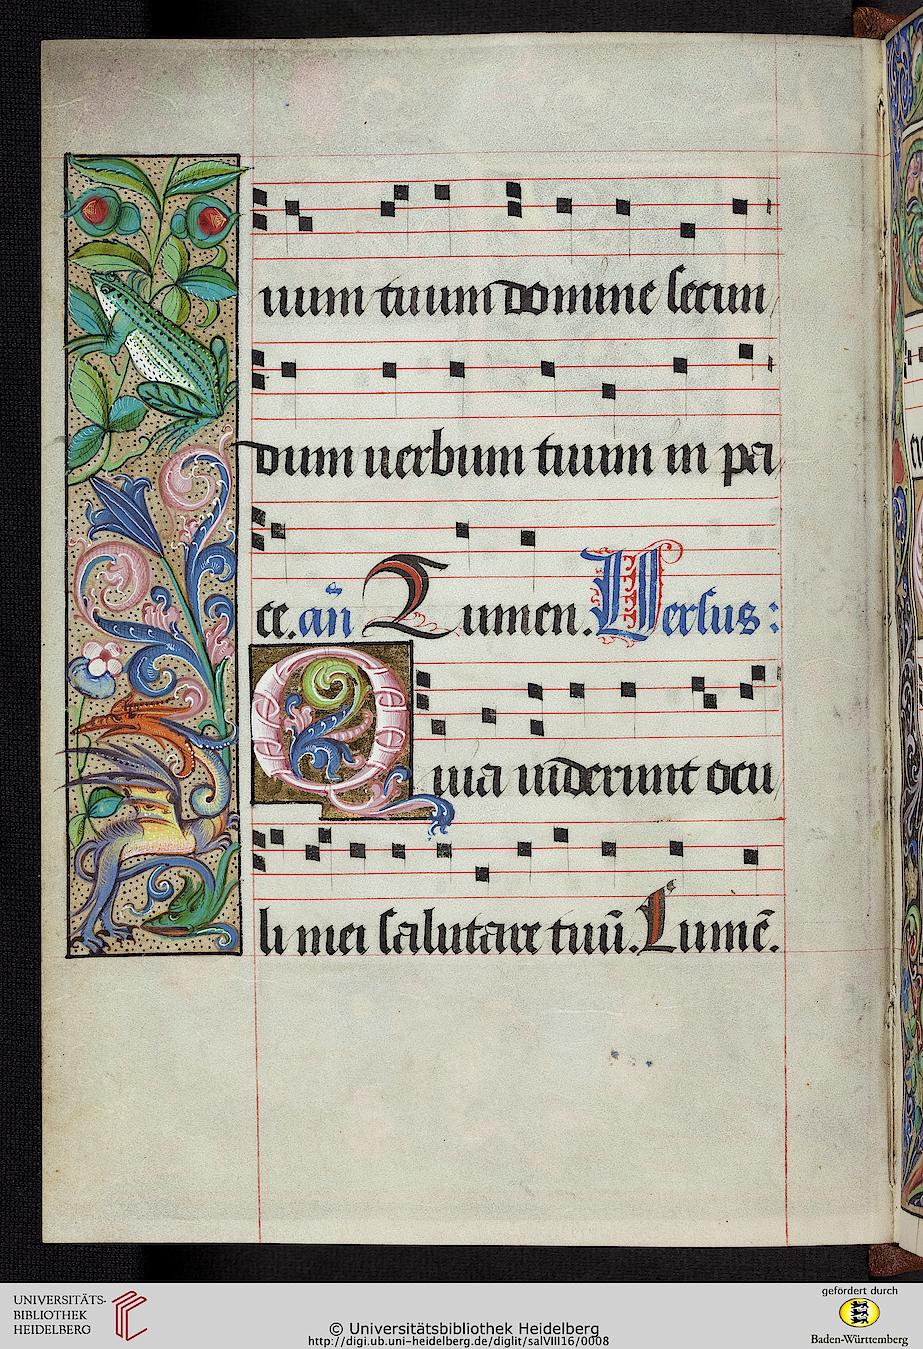 uum tuum domine secun
dum uerbum tuum in pa
ce. añ Lumen. Versus:
Quia uiderunt ocu
li mei salutare tuū. Lumē.
UNIVERSITÄTS-
BIBLIOTHEK
HEIDELBERG
© Universitätsbibliothek Heidelberg
http://digi.ub.uni-heidelberg.de/diglit/salVIII16/0008
gefördert durch
Baden-Württemberg